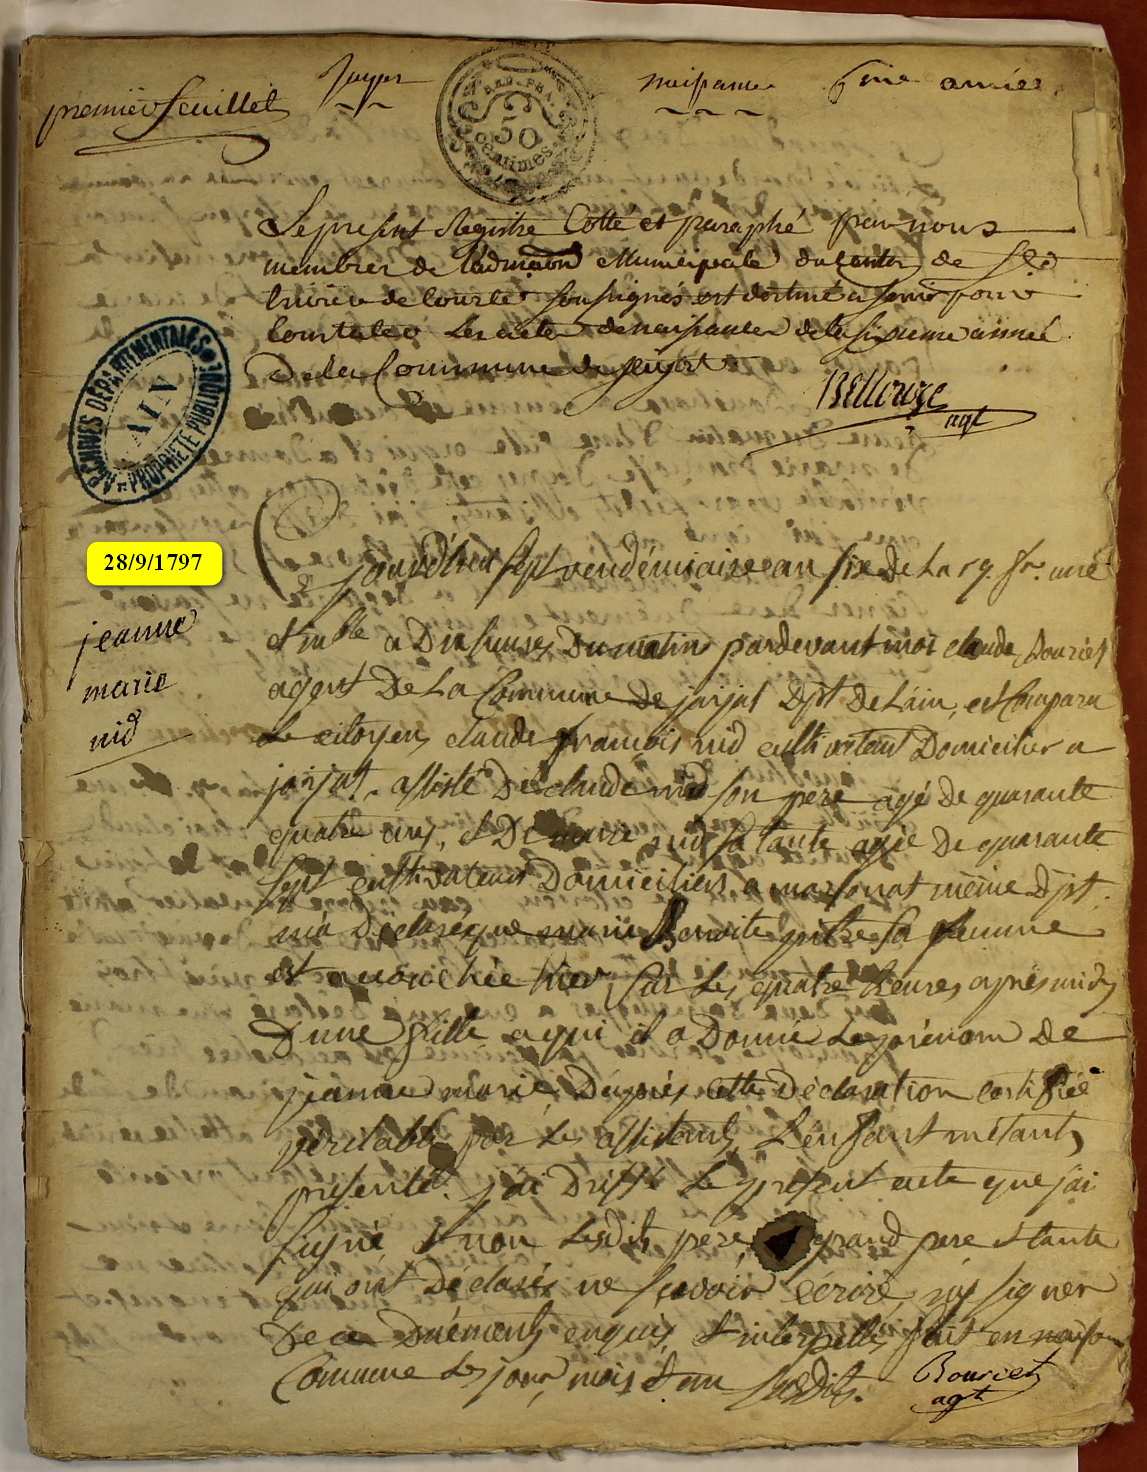 premier feuillet
Jayat
naissance 6me année
REP. FRA.
50
centimes
Le present Registre Cotté et paraphé par nous
membres de l'admaon Municipale du canton de St
trivier de Courtes soussignés est destiné a servir pour
Constater Les actes de naissances de la sixieme année
De la Commune de Jayat
Bellouze
agt
ARCHIVES DÉPARTEMENTALES
AIN
PROPRIÉTÉ PUBLIQUE
28/9/1797
jeanne
marie
nid
jourd'hui sept vendémiaire an six De La rep. fr. une
et indble a Dix heures Du matin pardevant moi claude Bouriet
agent De La Commune de jayat Dpt De Lain, est Comparu
Le citoyen claude françois nid cultivateur Domicilier a
jayat, assisté De claude nid son pere agé de quarante
quatre ans, et De marie nid sa tante agée De quarante
sept cultivateurs Domiciliers a marsonat même Dpt.
m'a Déclaré que marie Benoite sa femme
est accouchée hier sur Les quatre heures après midy
D'une fille a qui il a Donné Le prénom De
jeanne marie, Daprès cette Déclaration certifiée
veritable par Les assistants, L'enfant m'étant
présenté. j'ai Dressé Le present acte que j'ai
signé, et non Lesdits pere, grand pere et tante
qui ont Déclarés ne savoir écrire, ny signer
De ce Duements enquis et interpellés fait en maison
Comune Les jour, mois et an susdits.
Bouriet
agt